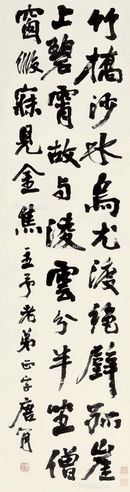 竹橋沙水烏尤渡絕壁孤崖
上碧霄故与淩雲分半坐僧
窗假寐見金焦 立予老弟正字